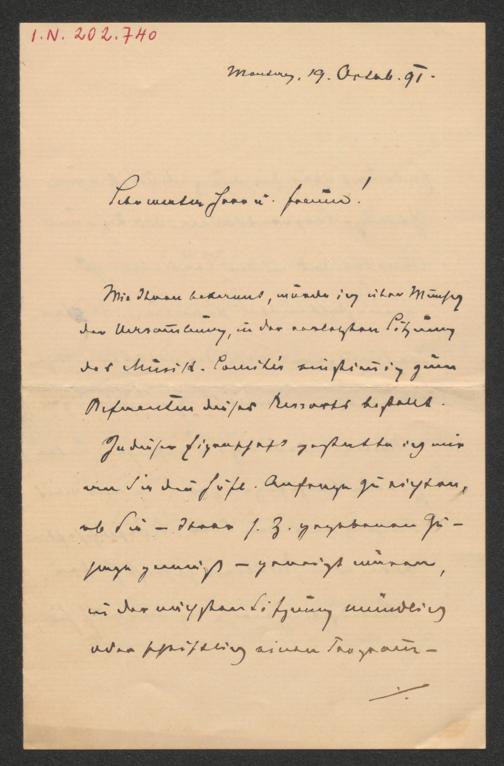 I.N. 202.740
Montag, 19. Octob. 91.
Sehr werter Herr u. Freund!
Wie Ihnen bekannt, wurde ich über Wunsch
der Versammlung, in der vorletzten Sitzung
des Musik-Comités einstimmig zum
Referenten dieses Ressorts bestellt.
In dieser Eigenschaft gestatte ich mir
an Sie die höfl. Anfrage zu richten,
ob Sie – Ihrer s. Z. gegebenen Zu-
sage gemäß – geneigt wären,
in der nächsten Sitzung mündlich
oder schriftlich einen Programm-